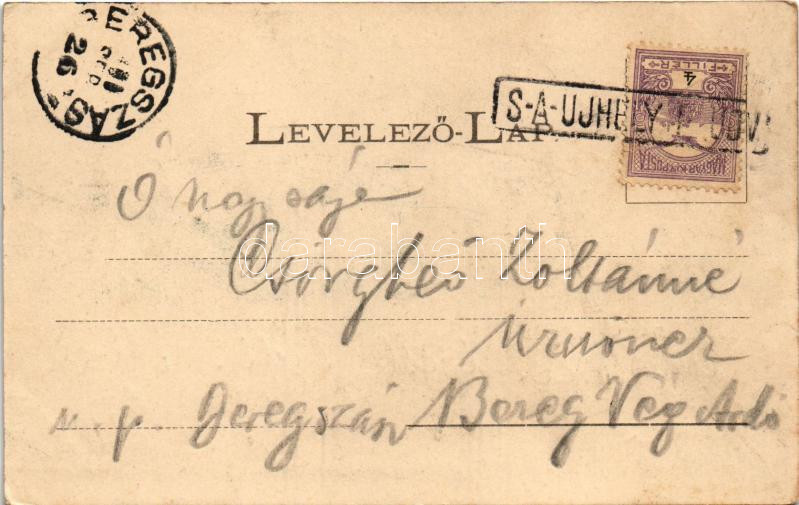 BEREGSZÁSZ
26
S-A-UJHELY
4
FILLÉR
MAGYAR KIR. POSTA
LEVELEZŐ-LAP
Ő nagysága
Csörgheő Zoltánné
úrnőnek
u. p. Beregszász Bereg Vég Ardó
darabanth